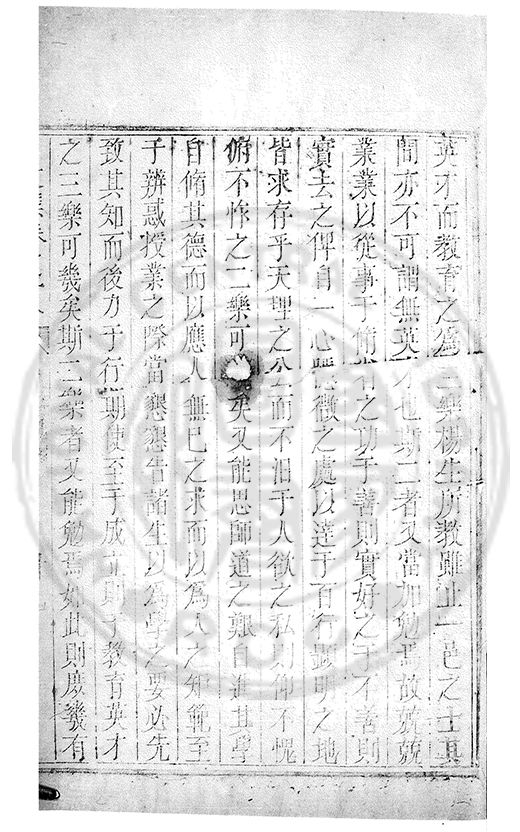 英才而教育之爲三樂楊生所教雖止一邑之士其
間亦不可謂無英才也斯二者又當加勉焉故兢兢
業業以從事于脩省之功于善則實好之于不善則
實去之俾自一心隱微之處以達于百行顯明之地
皆求存乎天理之公而不汨于人欲之私則仰不愧
俯不怍之二樂可矣又能思師道之艱自進其學
自脩其德而以應人無已之求而以爲人之知範至
于辨惑授業之際當懇懇吿諸生以爲學之要必先
致其知而後力于行期使至于成立則于教育英才
之三樂可幾矣斯二樂者又能勉焉如此則庶幾有